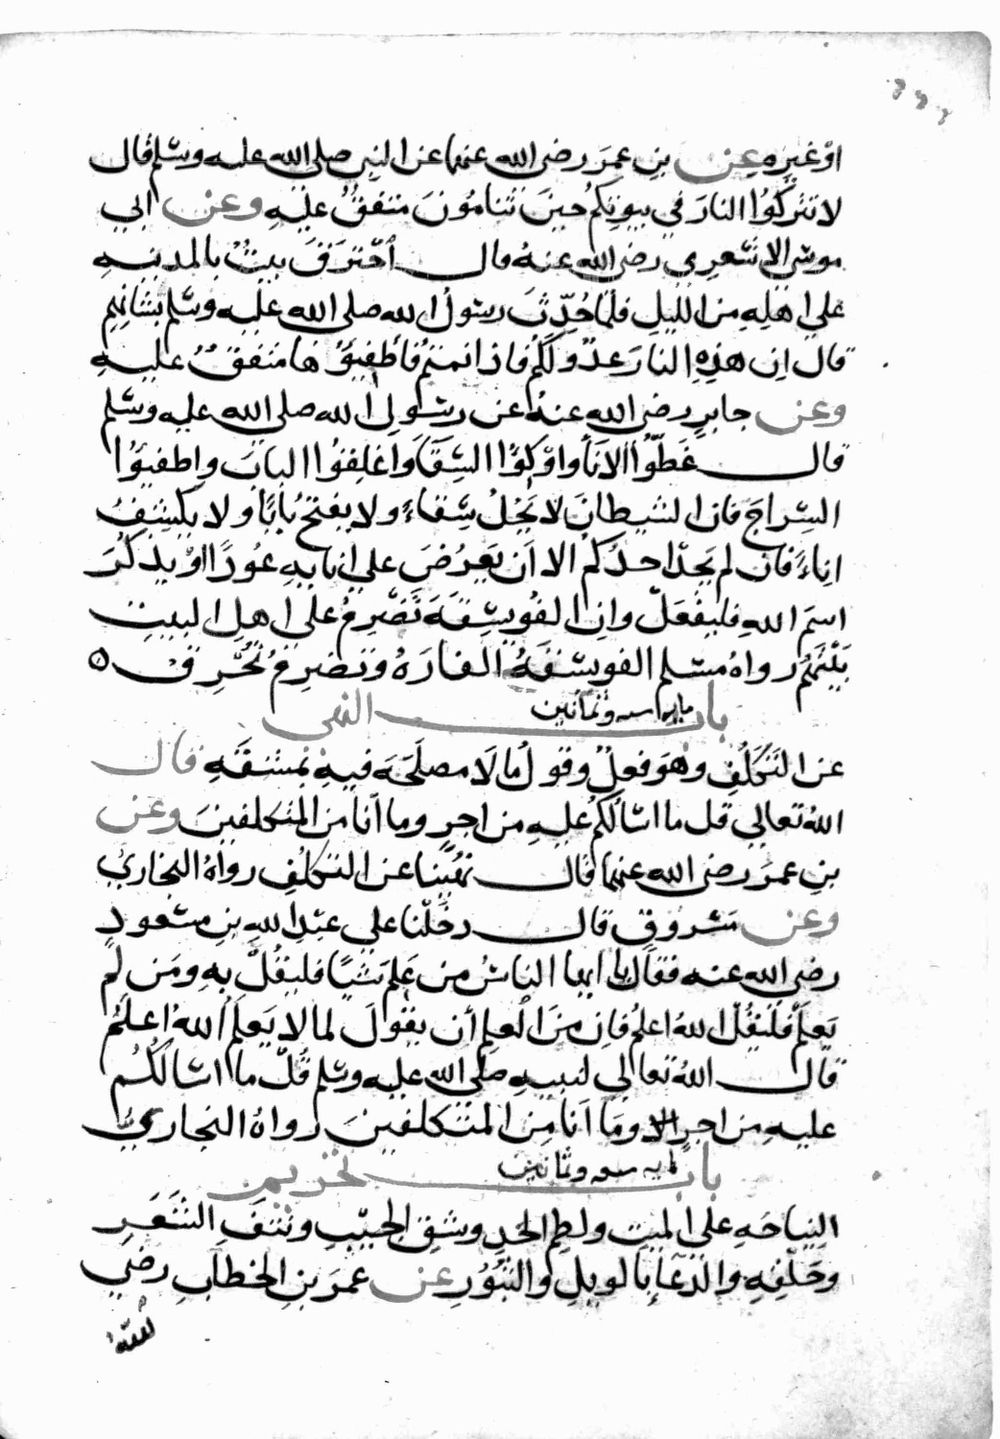 اوْ غيره عن بنِ عمرَ رضى الله عنهما عن النبي صلى الله عليه وسلم قال
لا تتركُوا النارَ في بيوتِكم حينَ تنامُونَ متفقٌ عليْهِ وعن ابي
موسى الاشعرِي رضى الله عنهُ قال احْترَقَ بيتٌ بالمدينهِ
على اهلِهِ من الليلِ فلمّا حُدِّثَ رسُولُ الله صلى الله عليه وسلم بشانِهِم
قال اِن هذِهِ النارَ عدُوٌّ لكُم فاذا نمتُم فاطْفِيؤُها متفقٌ عليهِ
وعن جابرٍ رضى الله عنهُ عن رسُولِ الله صلى الله عليه وسلم
قال غَطُّوا الانَآ وَاوْكِؤُا السِّقَآ وَاَغلِقُوا البابَ واطفيؤُا
السِّراجَ فان الشيطانَ لا يَحُلُّ سِقاءً ولا يفتحُ بابًا ولا يكشِفُ
اِناءً فان لم يَجدْ احدُكم الا اَن يَعرُضَ على اِنايِهِ عُودًا اوْ يذكُرَ
اسمَ اللهِ فليفعَلْ واِن الفُويسِقَةَ تُضْرِمُ على اهلِ البيتِ
بَيْتَهُم رواهُ مسلم الفويسقَةُ الفارَهُ وتضرِمُ تُحْرِق ٥
باب النهى
عن التكَلُّفِ وهُوَ فعلٌ وقولُ ما لَا مصلَحَهَ فيهِ بمشقَّهٍ قال
اللهُ تعالي قل ما اسْالُكُم عليهِ من اجرٍ وما اَنا من المتكلفينَ وعن
بنِ عمرَ رضى الله عنهما قال نُهِينا عن التكلُّفِ رواهُ البخاريُ
وعن مَسْروقٍ قال دخَلْنا على عبْدِ اللهِ بنِ مسْعودٍ
رضى الله عنه فقال يا ايها الناسُ من عَلِمَ شيًا فليقُلْ بهِ ومَن لَم
يَعلَمْ فَليقُلْ اللهُ اعلمُ فاِن مِنَ الْعلمِ أن يقُولَ لما لا يَعلَمُ اللهُ اعلمُ
قال اللهُ تعالي لنبيهِ صلى الله عليه وسلم قُلْ ما اسالُكُم
عليهِ من اجرٍ وما اَنا مِن المتكلفينَ رواهُ البخاريُ
باب تحريم
النِياحَهِ على الميتِ ولطمِ الخدِ وشقِ الجيْبِ ونتفِ الشعَرِ
وحَلْقِهِ والدُعآءِ بالويلِ والثُبُورِ عن عمرَ بنِ الخطابِ رضي
اللهُ